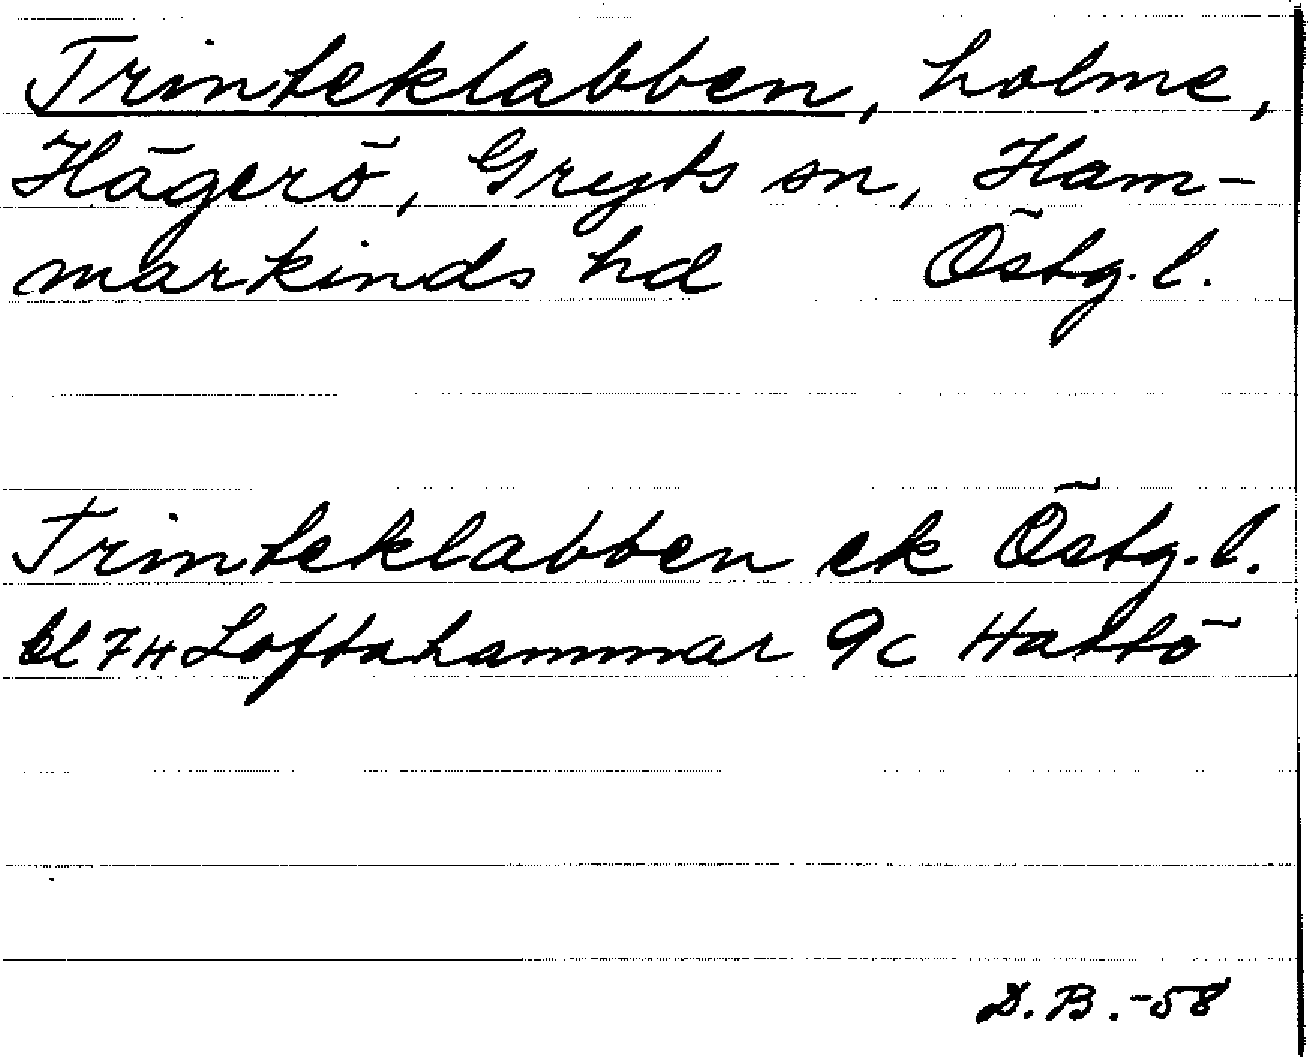 Trinteklabben, holme,
Hägerö, Gryts sn, Ham-
markinds hd Östg. l.
Trinteklabben ek Östg. l.
bl 7H Loftahammar 9c Hattö
D. B. -58